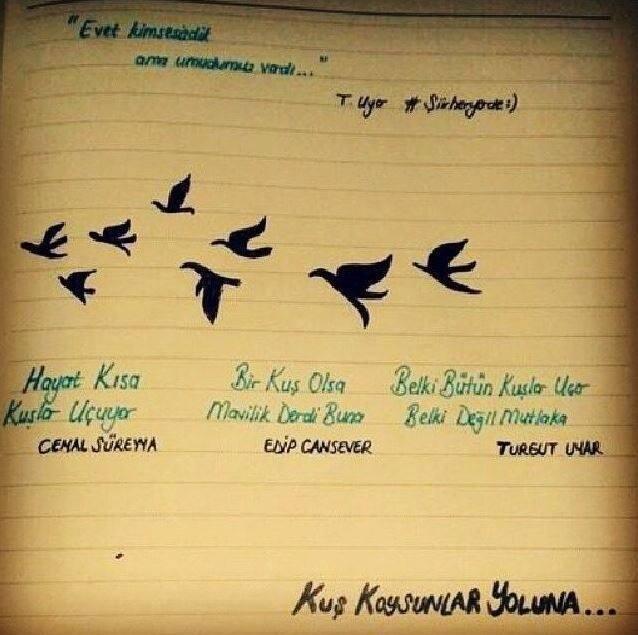 "Evet kimsesizdik
ama umudumuz vardı..."
T. Uyar #Şiirheryerde:)
Hayat Kısa
Kuşlar Uçuyor
CEMAL SÜREYYA
Bir Kuş Olsa
Mavilik Derdi Buna
EDİP CANSEVER
Belki Bütün Kuşlar Uçar
Belki Değil Mutlaka
TURGUT UYAR
Kuş KOYSUNLAR YOLUNA...